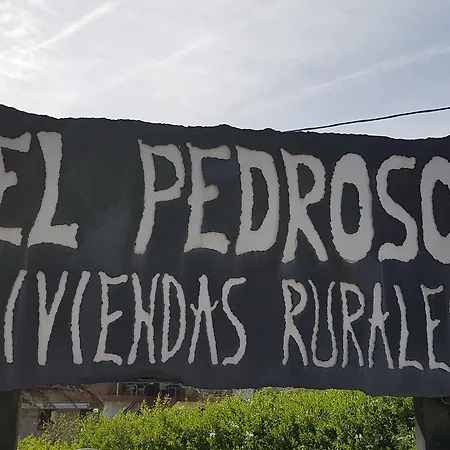 EL PEDROSO
VIVIENDAS RURALES